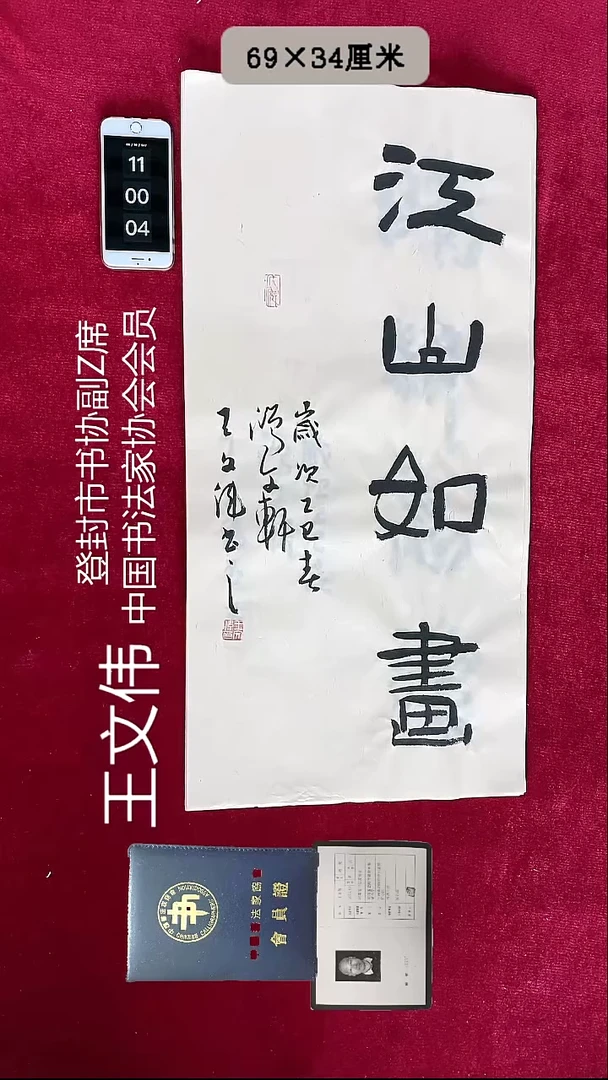 69×34厘米
11
00
04
江山如畫
歲次乙巳春
鴻文軒
王文伟书之
登封市书协副Z席
中国书法家协会会员
王文伟
中國書法家協會
會員證